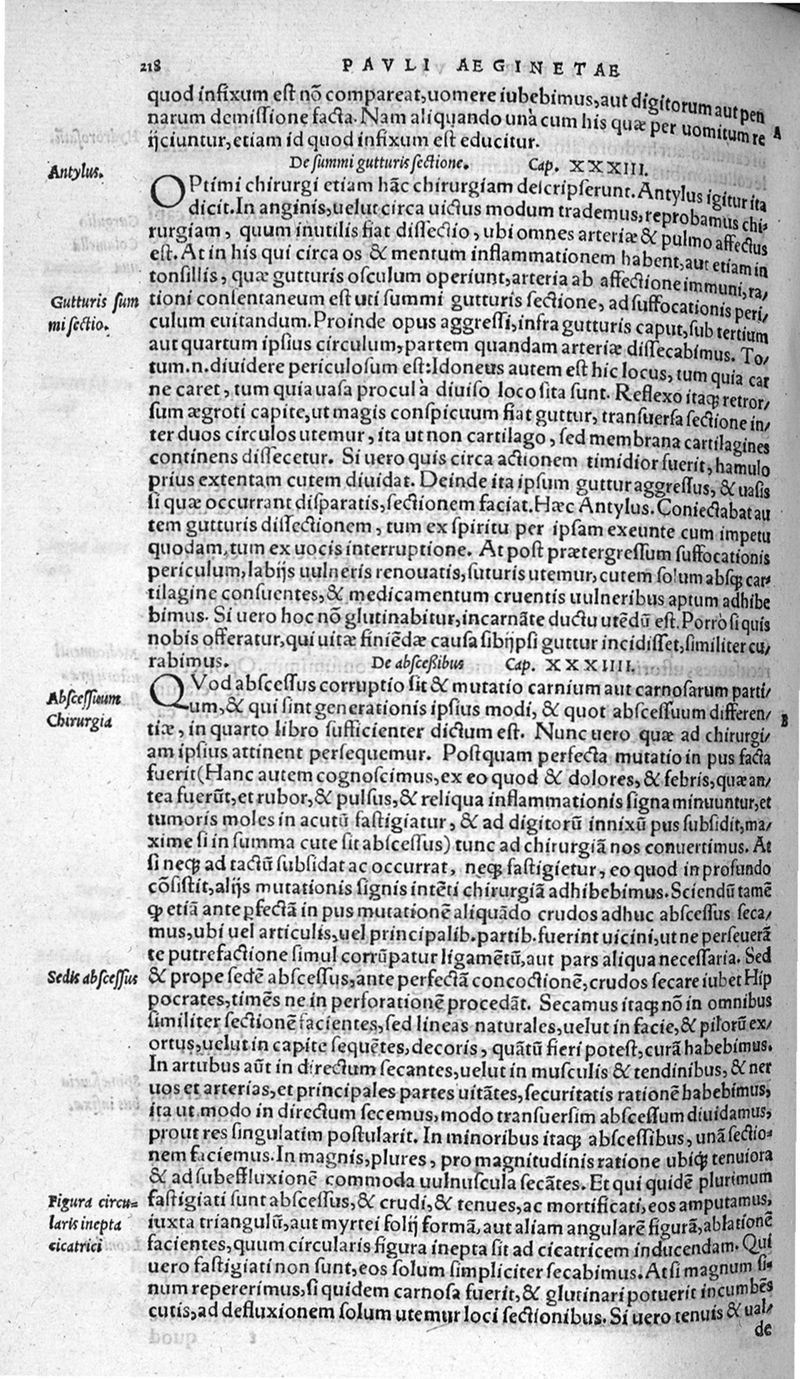 218 PAVLI AEGINETAE
quod infixum est nõ compareat, uomere iubebimus, aut digitorum aut pen
narum demissione facta. Nam aliquando unà cum his quæ per uomitum re A
ijciuntur, etiam id quod infixum est educitur.
De summi gutturis sectione. Cap. XXXIII.
Antylus.
OPtimi chirurgi etiam hãc chirurgiam descripserunt. Antylus igitur ita
dicit. In anginis, uelut circa uictus modum trademus, reprobamus chi/
rurgiam, quum inutilis fiat dissectio, ubi omnes arteriæ & pulmo affectus
est. At in his qui circa os & mentum inflammationem habent, aut etiam in
tonsillis, quæ gutturis osculum operiunt, arteria ab affectione immuni, ra/
Gutturis sum
mi sectio.
tioni consentaneum est uti summi gutturis sectione, ad suffocationis peri/
culum euitandum. Proinde opus aggressi, infra gutturis caput, sub tertium
aut quartum ipsius circulum, partem quandam arteriæ dissecabimus. To/
tum.n. diuidere periculosum est: Idoneus autem est hic locus, tum quia car
ne caret, tum quia uasa procul à diuiso loco sita sunt. Reflexo itaq; retror/
sum ægroti capite, ut magis conspicuum fiat guttur, transuersa sectione in/
ter duos circulos utemur, ita ut non cartilago, sed membrana cartilagines
continens dissecetur. Si uero quis circa actionem timidior fuerit, hamulo
prius extentam cutem diuidat. Deinde ita ipsum guttur aggressus, & uasis
si quæ occurrant disparatis, sectionem faciat. Hæc Antylus. Coniectabat au
tem gutturis dissectionem, tum ex spiritu per ipsam exeunte cum impetu
quodam, tum ex uocis interruptione. At post prætergressum suffocationis
periculum, labijs uulneris renouatis, suturis utemur, cutem solum absq; car/
tilagine consuentes, & medicamentum cruentis uulneribus aptum adhibe
bimus. Si uero hoc nõ glutinabitur, incarnãte ductu utẽdũ est. Porrò si quis
nobis offeratur, qui uitæ finiẽdæ causa sibijpsi guttur incidisset, similiter cu/
rabimus. De abscessibus Cap. XXXIIII.
Abscessuum
Chirurgia
QVod abscessus corruptio sit & mutatio carnium aut carnosarum parti/
um, & qui sint generationis ipsius modi, & quot abscessuum differen/ B
tiæ, in quarto libro sufficienter dictum est. Nunc uero quæ ad chirurgi/
am ipsius attinent persequemur. Postquam perfecta mutatio in pus facta
fuerit (Hanc autem cognoscimus, ex eo quod & dolores, & febris, quæ an/
tea fuerũt, et rubor, & pulsus, & reliqua inflammationis signa minuuntur, et
tumoris moles in acutũ fastigiatur, & ad digitorũ innixũ pus subsidit, ma/
xime si in summa cute sit abscessus) tunc ad chirurgiã nos conuertimus. At
si neq; ad tactũ subsidat ac occurrat, neq; fastigietur, eo quod in profundo
cõsistit, alijs mutationis signis intẽti chirurgiã adhibebimus. Sciendũ tamẽ
ꝙ etiã ante ꝑfectã in pus mutationẽ aliquãdo crudos adhuc abscessus seca/
mus, ubi uel articulis, uel principalib. partib. fuerint uicini, ut ne perseuerã
te putrefactione simul corrũpatur ligamẽtũ, aut pars aliqua necessaria. Sed
Sedis abscessus
& prope sedẽ abscessus, ante perfectã concoctionẽ, crudos secare iubet Hip
pocrates, timẽs ne in perforationẽ procedãt. Secamus itaq; nõ in omnibus
similiter sectionẽ facientes, sed lineas naturales, uelut in facie, & pilorũ ex/
ortus, uelut in capite sequẽtes, decoris, quãtũ fieri potest, curã habebimus.
In artubus aũt in directum secantes, uelut in musculis & tendinibus, & ner
uos et arterias, et principales partes uitãtes, securitatis rationẽ habebimus,
ita ut modo in directum secemus, modo transuersim abscessum diuidamus,
prout res singulatim postularit. In minoribus itaq; abscessibus, unã sectio-
nem faciemus. In magnis, plures, pro magnitudinis ratione ubiq; tenuiora
& ad subeffluxionẽ commoda uulnuscula secãtes. Et qui quidẽ plurimum
Figura circu-
laris inepta
cicatrici
fastigiati sunt abscessus, & crudi, & tenues, ac mortificati, eos amputamus,
iuxta triangulũ, aut myrtei folij formã, aut aliam angularẽ figurã, ablationẽ
facientes, quum circularis figura inepta sit ad cicatricem inducendam. Qui
uero fastigiati non sunt, eos solum simpliciter secabimus. At si magnum si-
num repererimus, si quidem carnosa fuerit, & glutinari potuerit incumbẽs
cutis, ad defluxionem solum utemur loci sectionibus. Si uero tenuis & ual/
de